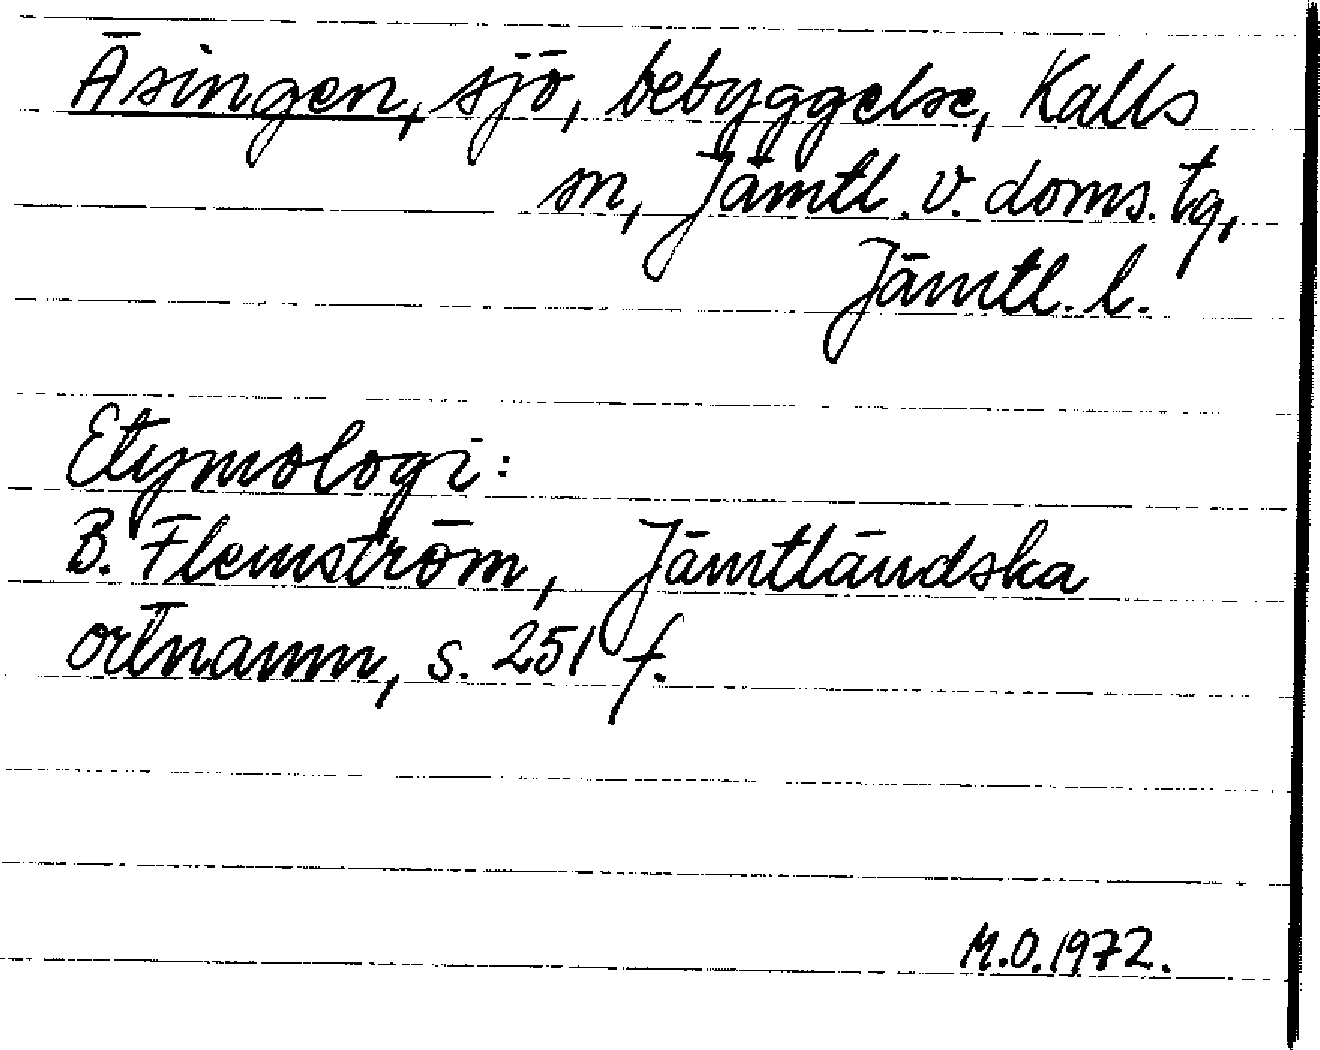 Äsingen, sjö, bebyggelse, Kalls
sn, Jämtl. v. doms. tg,
Jämtl. l.
Etymologi:
B. Flemström, Jämtländska
ortnamn, s. 251 f.
M.O. 1972.